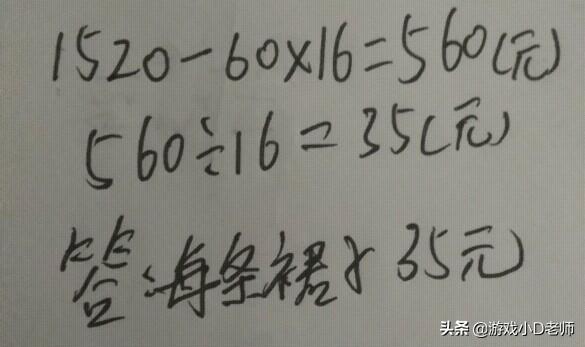 1520-60×16=560(元)
560÷16=35(元)
答:每条裙子35元
头条 @游戏小D老师